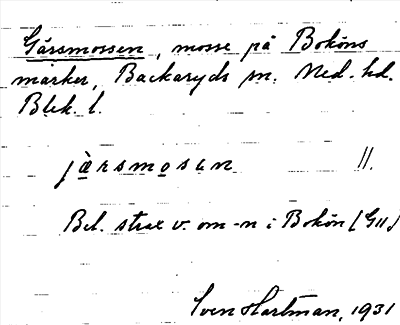 Gärsmossen, mosse på Boköns
marker, Backaryds sn. Med. hd.
Blek. l.
jàrsmosen ||.
Bel. strax v. om -n i Bokön (G11)
Sven Hartman, 1931